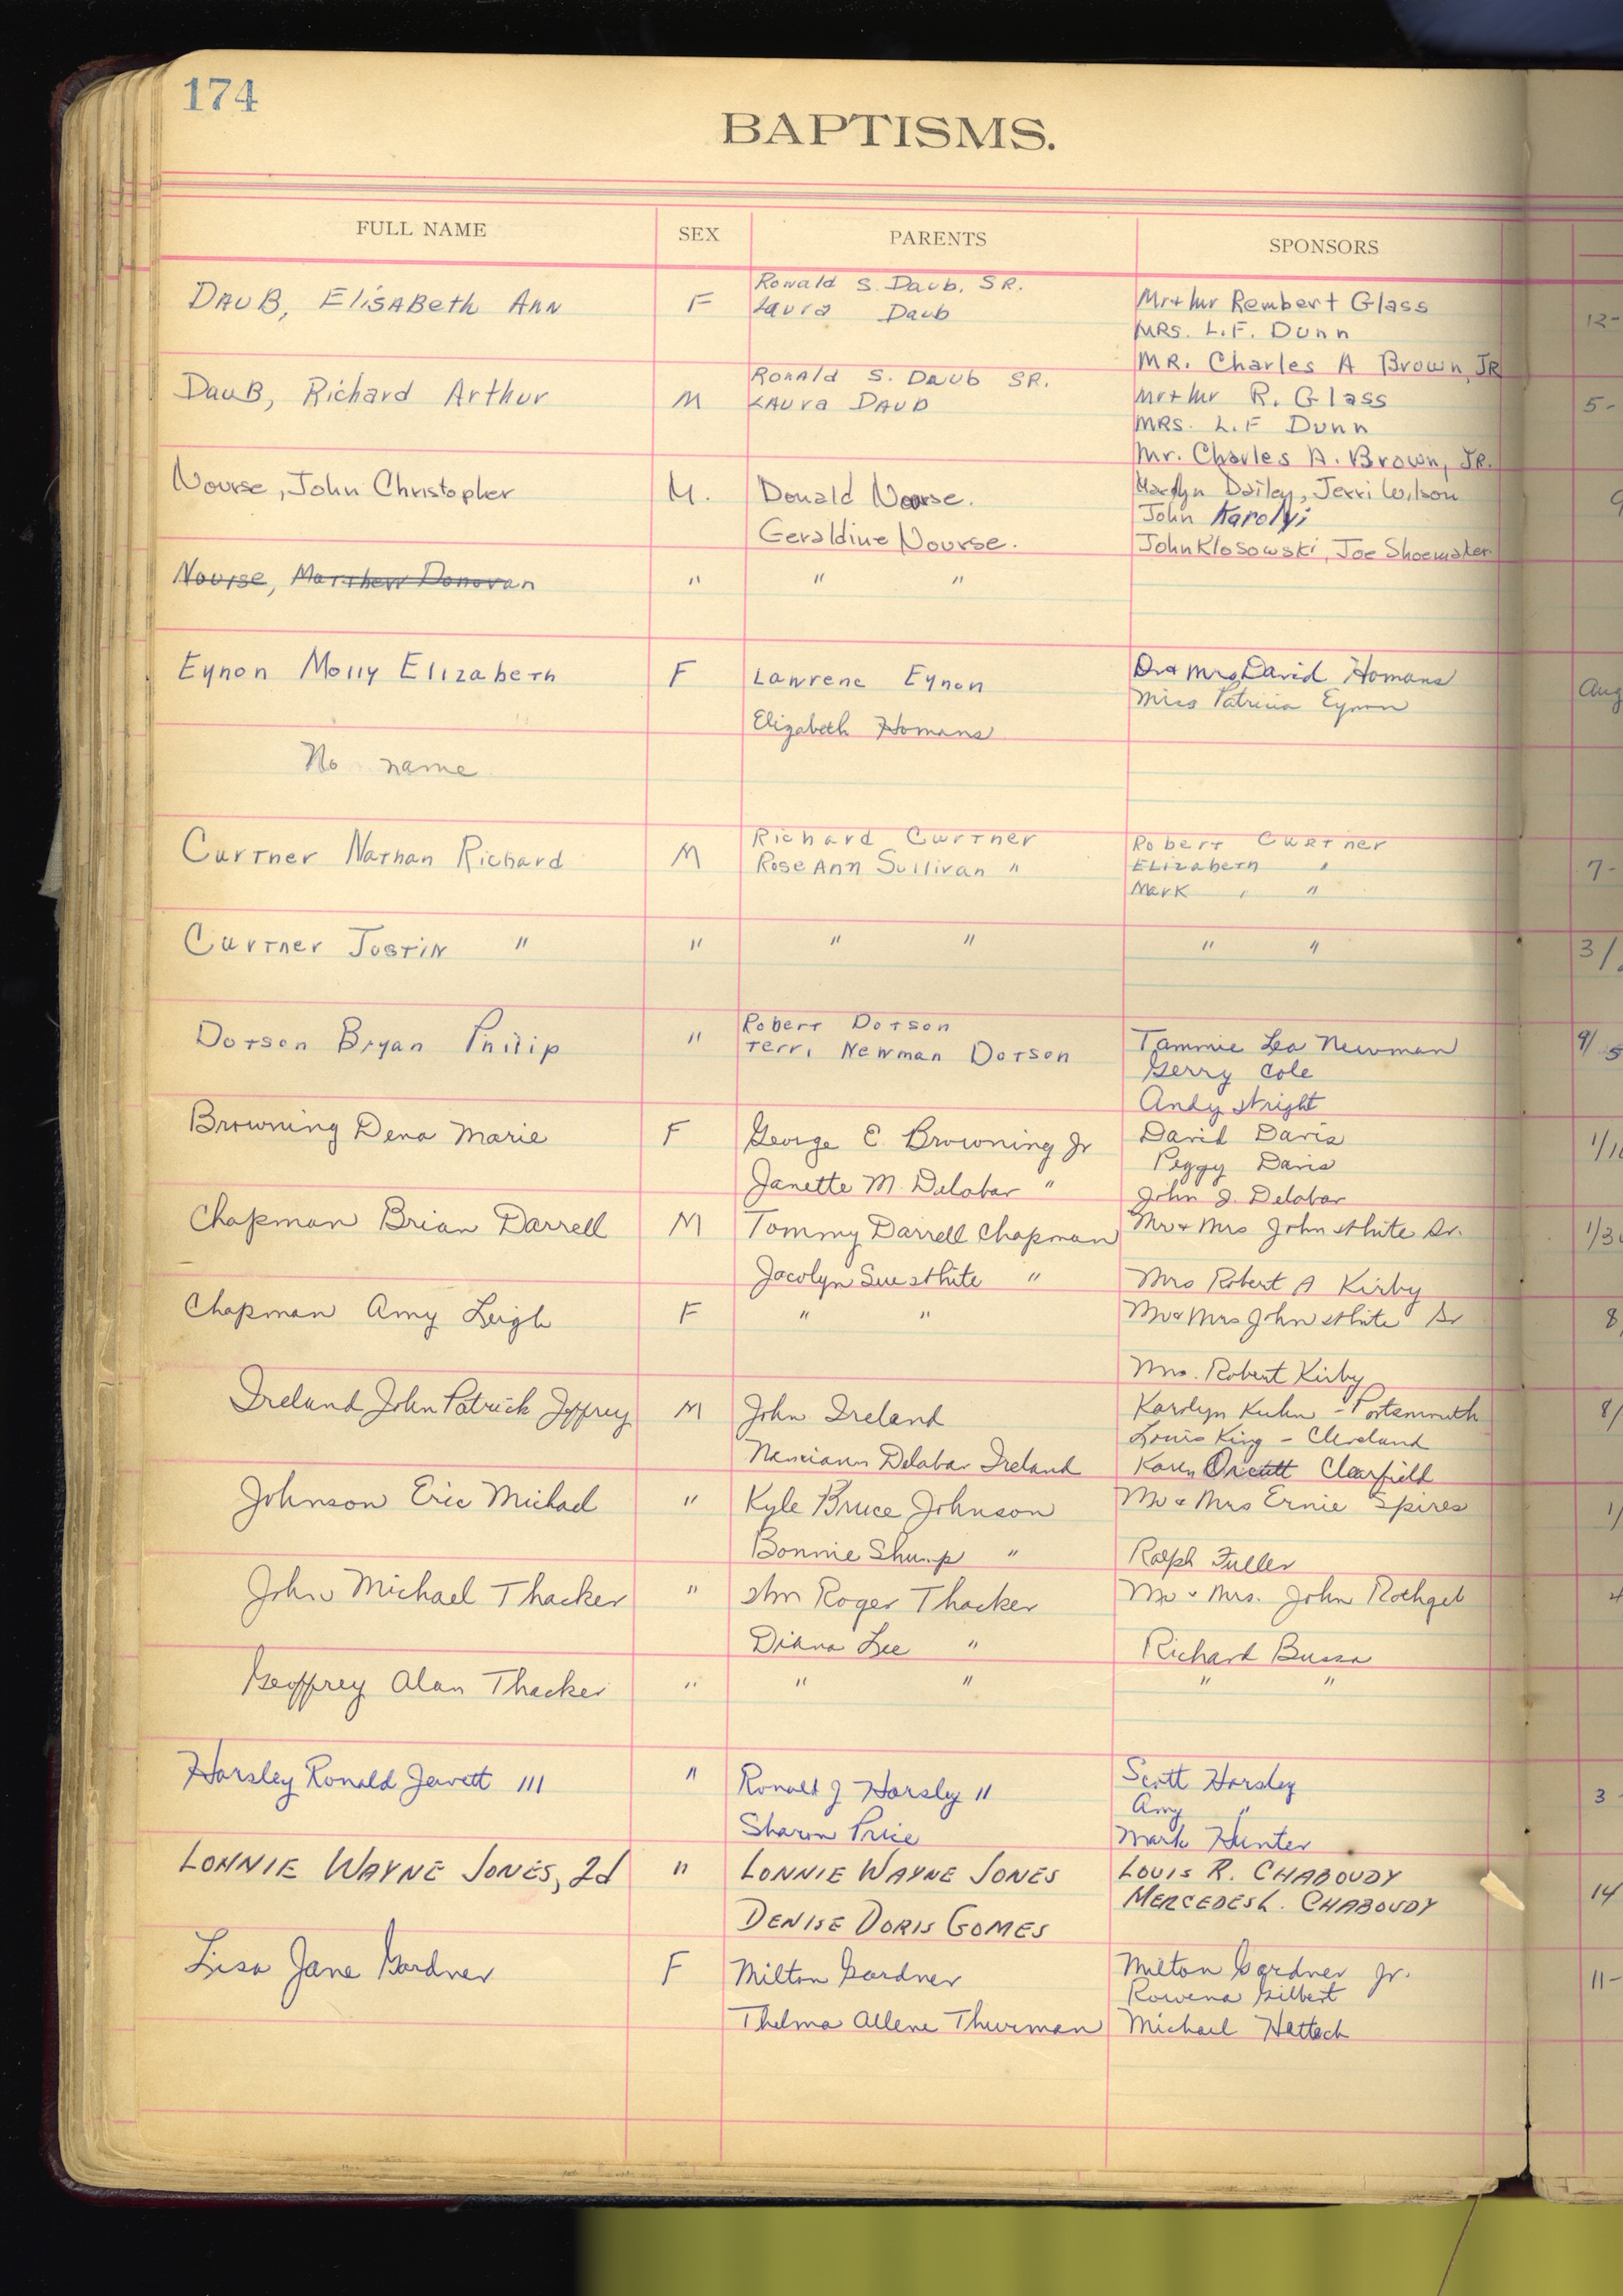 174
BAPTISMS.
FULL NAME SEX PARENTS SPONSORS
DAUB, ElisABeth ANN F Ronald S. Daub, SR. Mr + Mr Rembert Glass
Laura Daub MRS. L.F. Dunn
MR. Charles A Brown, JR
DauB, Richard Arthur M Ronald S. Daub SR. Mr + Mr R. Glass
Laura Daub MRS. L.F Dunn
Mr. Charles A. Brown, JR.
Nourse, John Christopher M. Donald Nourse. Marilyn Dailey, Jerri Wilson
Geraldine Nourse. John Karolyi
John Klosowski, Joe Shoemaker
Nourse, Matthew Donovan " " "
Eynon Molly Elizabeth F Lawrenc Eynon Dr + Mrs David Homans
Elizabeth Homans Miss Patricia Eynon
No name
Curtner Nathan Richard M Richard Curtner Robert Curtner
Rose Ann Sullivan " Elizabeth "
Mark " "
Curtner Justin " " " " " "
Dotson Bryan Philip " Robert Dotson Tammie Lea Newman
Terri Newman Dotson Gerry Cole
Andy Wright
Browning Dena Marie F George E. Browning Jr David Davis
Janette M. Delabar " Peggy Davis
John J. Delabar
Chapman Brian Darrell M Tommy Darrell Chapman Mr + Mrs John White Sr.
Jacolyn Sue White " Mrs Robert A Kirby
Chapman Amy Leigh F " " Mr + Mrs John White Sr
Mrs. Robert Kirby
Ireland John Patrick Jeffrey M John Ireland Karolyn Kuhn - Portsmouth
Nanciann Delabar Ireland Louis King - Cleveland
Karen Orcutt Clearfield
Johnson Eric Michael " Kyle Bruce Johnson Mr + Mrs Ernie Spires
Bonnie Shump " Ralph Fuller
John Michael Thacker " Wm Roger Thacker Mr + Mrs. John Rothgeb
Diana Lee " Richard Bussa
Geoffrey Alan Thacker " " " " "
Horsley Ronald Jewett III " Ronald J Horsley II Scott Horsley
Sharon Price Amy "
Mark Hunter
LONNIE WAYNE JONES, 2d " LONNIE WAYNE JONES LOUIS R. CHABOUDY
DENISE DORIS GOMES MERCEDES L. CHABOUDY
Lisa Jane Gardner F Milton Gardner Milton Gardner Jr.
Thelma Allene Thurman Rowena Gilbert
Michael Hettech